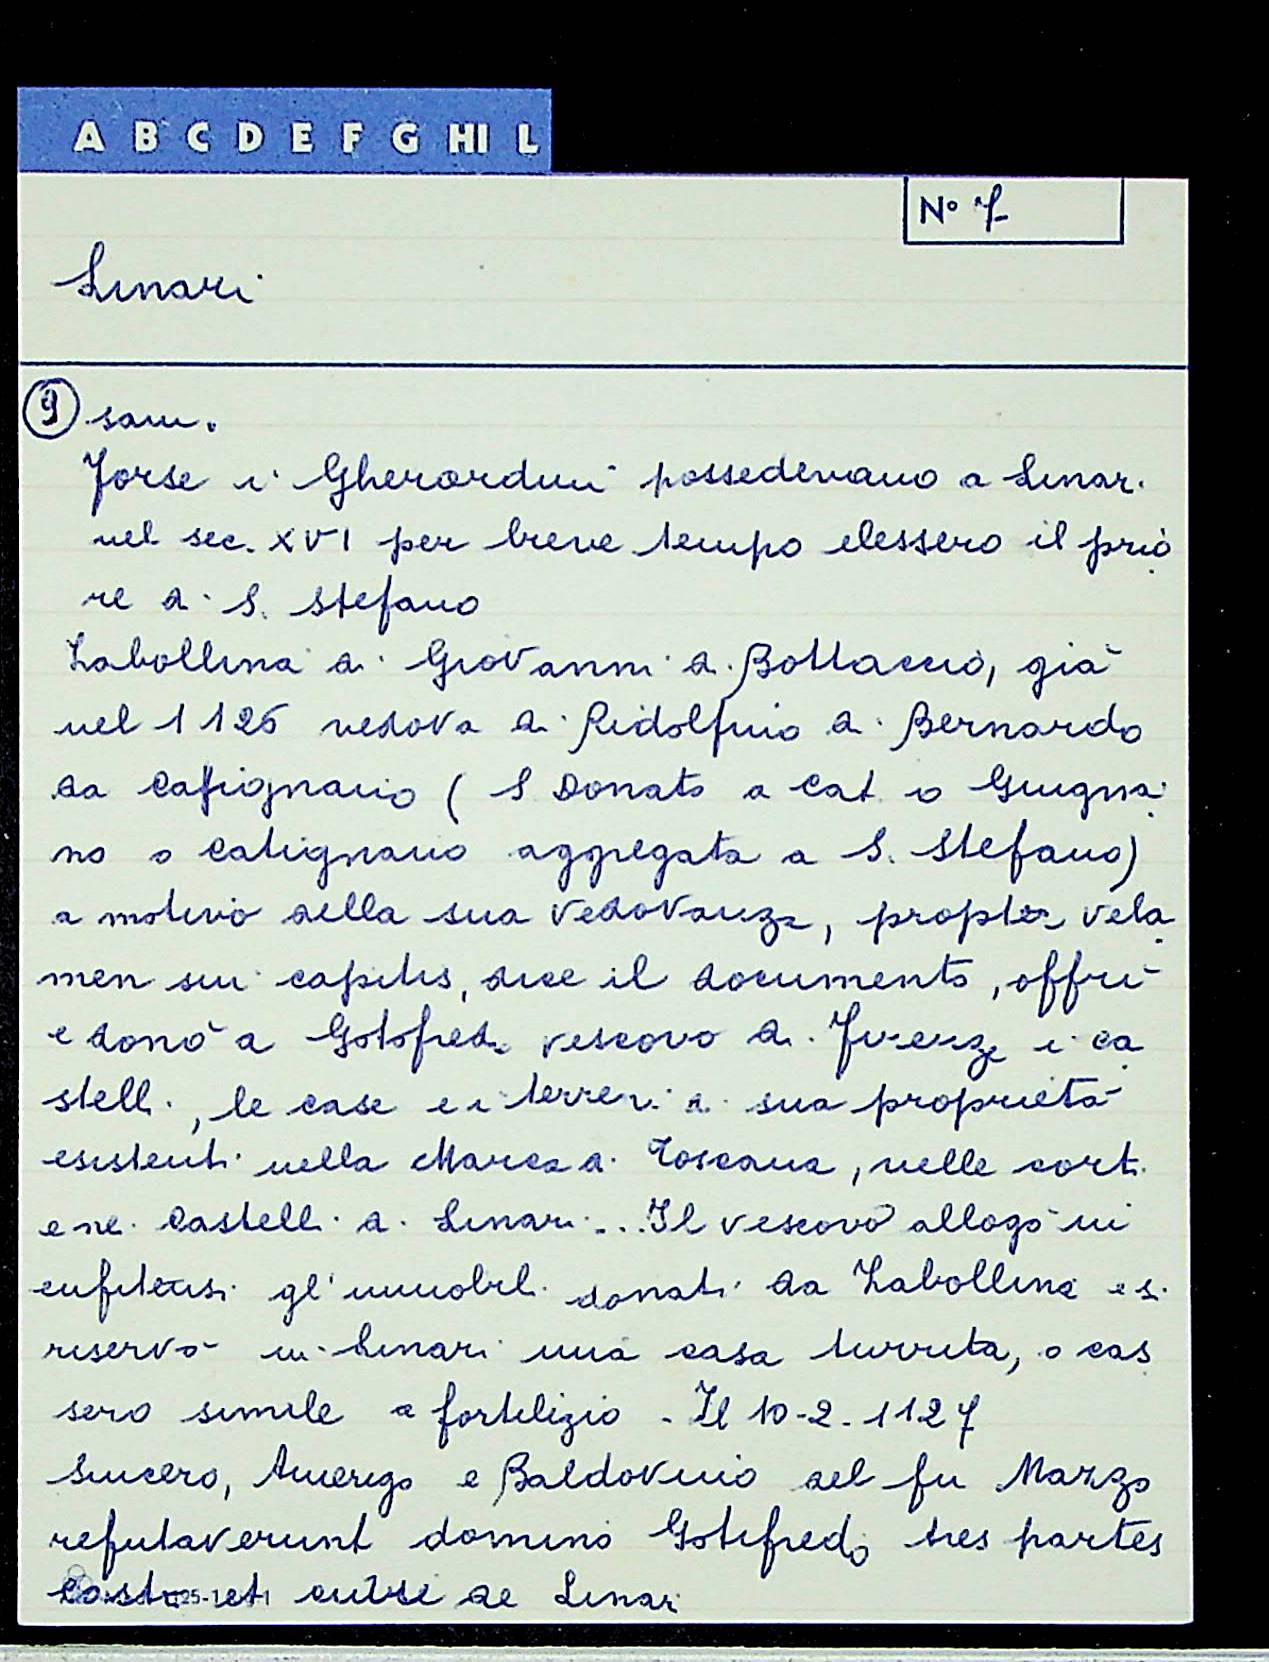 A B C D E F G HI L
N° 7
Linari
9 sani.
Forse i Gherardini possedevano a Linari
nel sec. XVI per breve tempo elessero il prio
re di S. Stefano
Zabollina di Giovanni di Bottaccio, già
nel 1126 vedova di Ridolfino di Bernardo
da Catignano (S Donato a Cat. o Giugna
no o Catignano aggregata a S. Stefano)
a motivo della sua vedovanza, propter vela
men sui capitis, dice il documento, offrì
e donò a Gotofredi vescovo di Firenze i ca
stelli, le case e i terreni di sua proprietà
esistenti nella Marca di Toscana, nelle corti
e nei castelli di Linari... Il vescovo allogò in
enfiteusi gl'immobili donati da Zabollina e si
riservò in Linari una casa turrita, o cas
sero simile a fortilizio - Il 10-2-1127
Sincero, Amerigo e Baldovino del fu Marzo
refutaverunt domino Gotifredo tres partes
castri et curie de Linari